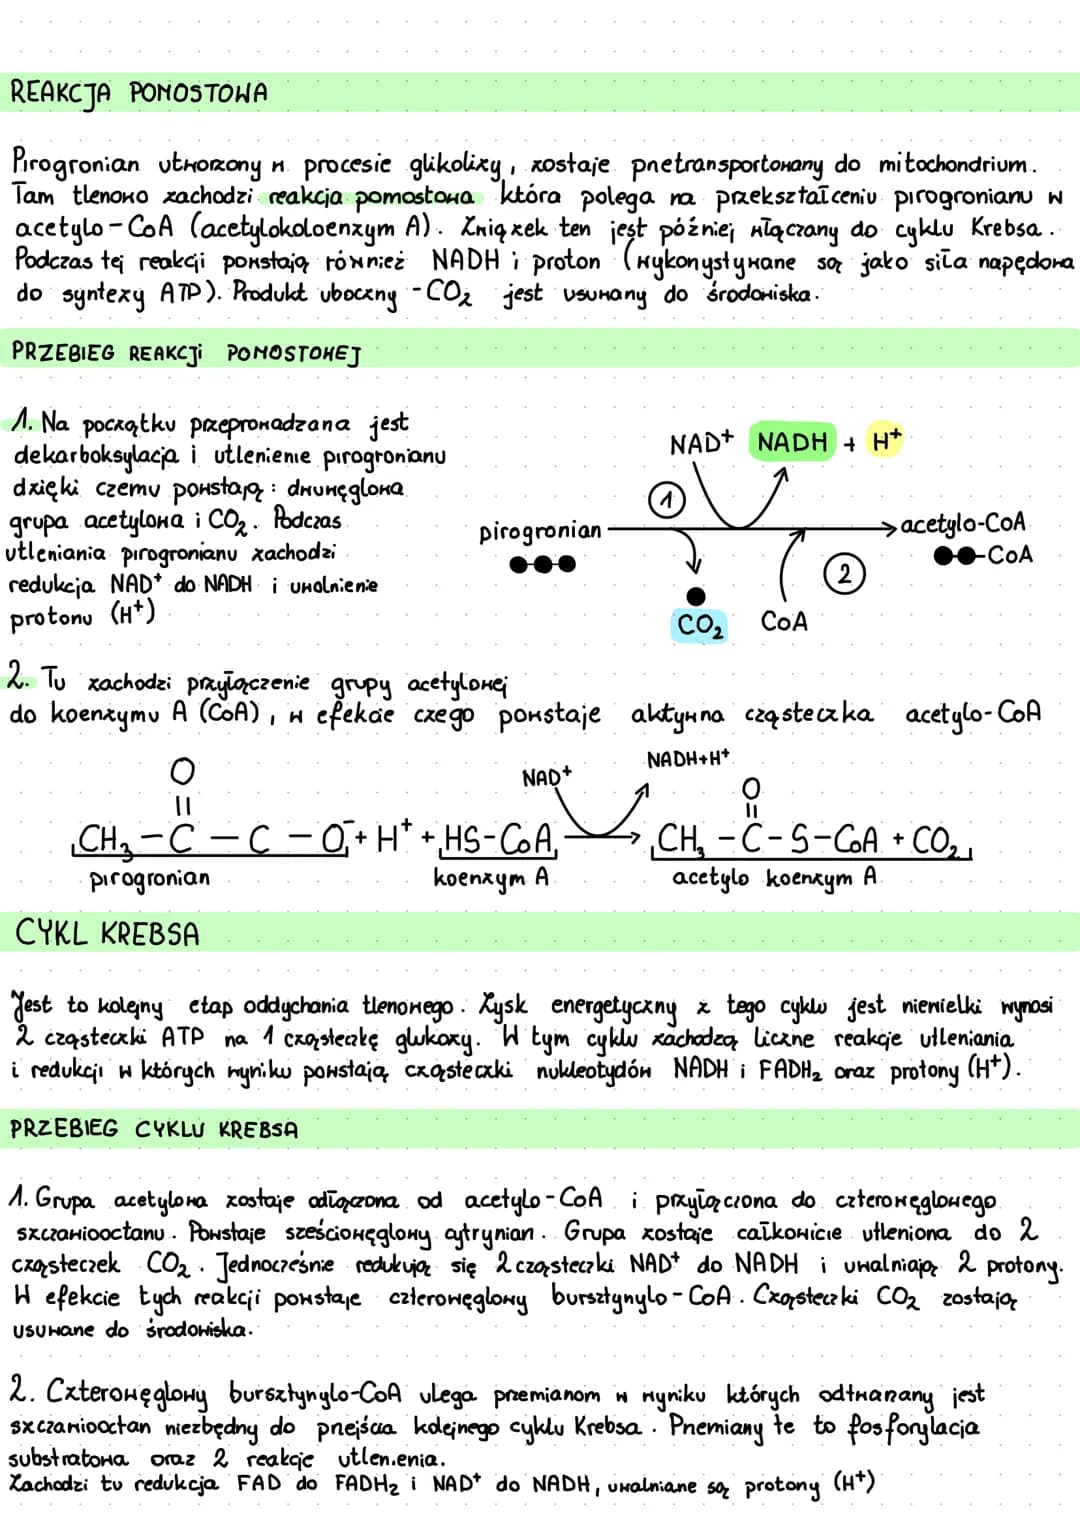 REAKCJA POMOSTOWA
Pirogronian utworzony w procesie glikolizy, zostaje przetransportowany do mitochondrium.
Tam tlenowo zachodzi reakcja pomostowa która polega na przekształceniu pirogronianu w
acetylo-CoA (acetylokoloenzym A). Związek ten jest później włączany do cyklu Krebsa.
Podczas tej reakcji powstają również NADH i proton (wykorzystywane są jako siła napędowa
do syntezy ATP). Produkt uboczny - CO₂ jest usuwany do środowiska.
PRZEBIEG REAKCJI POMOSTOWEJ
1. Na początku przeprowadzana jest
dekarboksylacja i utlenienie pirogronianu
dzięki czemu powstają: dwuwęglowa
grupa acetylowa i CO₂. Podczas
utleniania pirogronianu zachodzi
redukcja NAD⁺ do NADH i uwolnienie
protonu (H⁺)
NAD⁺ NADH + H⁺
1
pirogronian
acetylo-CoA
-CoA
2
CO₂ CoA
2. Tu zachodzi przyłączenie grupy acetylowej
do koenzymu A (CoA), w efekcie czego powstaje aktywna cząsteczka acetylo-CoA
NAD⁺ NADH+H⁺
O O
|| ||
CH₃ - C - C - O⁻ + H⁺ + HS-CoA → CH₃ - C - S - CoA + CO₂
pirogronian koenzym A acetylo koenzym A
CYKL KREBSA
Jest to kolejny etap oddychania tlenowego. Zysk energetyczny z tego cyklu jest niewielki wynosi
2 cząsteczki ATP na 1 cząsteczkę glukozy. W tym cyklu zachodzą liczne reakcje utleniania
i redukcji w których wyniku powstają cząsteczki nukleotydów NADH i FADH₂ oraz protony (H⁺).
PRZEBIEG CYKLU KREBSA
1. Grupa acetylowa zostaje odłączona od acetylo-CoA i przyłączona do czterowęglowego
szczawiooctanu. Powstaje sześciowęglowy cytrynian. Grupa zostaje całkowicie utleniona do 2
cząsteczek CO₂. Jednocześnie redukują się 2 cząsteczki NAD⁺ do NADH i uwalniają 2 protony.
W efekcie tych reakcji powstaje czterowęglowy bursztynylo-CoA. Cząsteczki CO₂ zostają
usuwane do środowiska.
2. Czterowęglowy bursztynylo-CoA ulega przemianom w wyniku których odtwarzany jest
szczawiooctan niezbędny do przejścia kolejnego cyklu Krebsa. Przemiany te to fosforylacja
substratowa oraz 2 reakcje utlenienia.
Zachodzi tu redukcja FAD do FADH₂ i NAD⁺ do NADH, uwalniane są protony (H⁺)